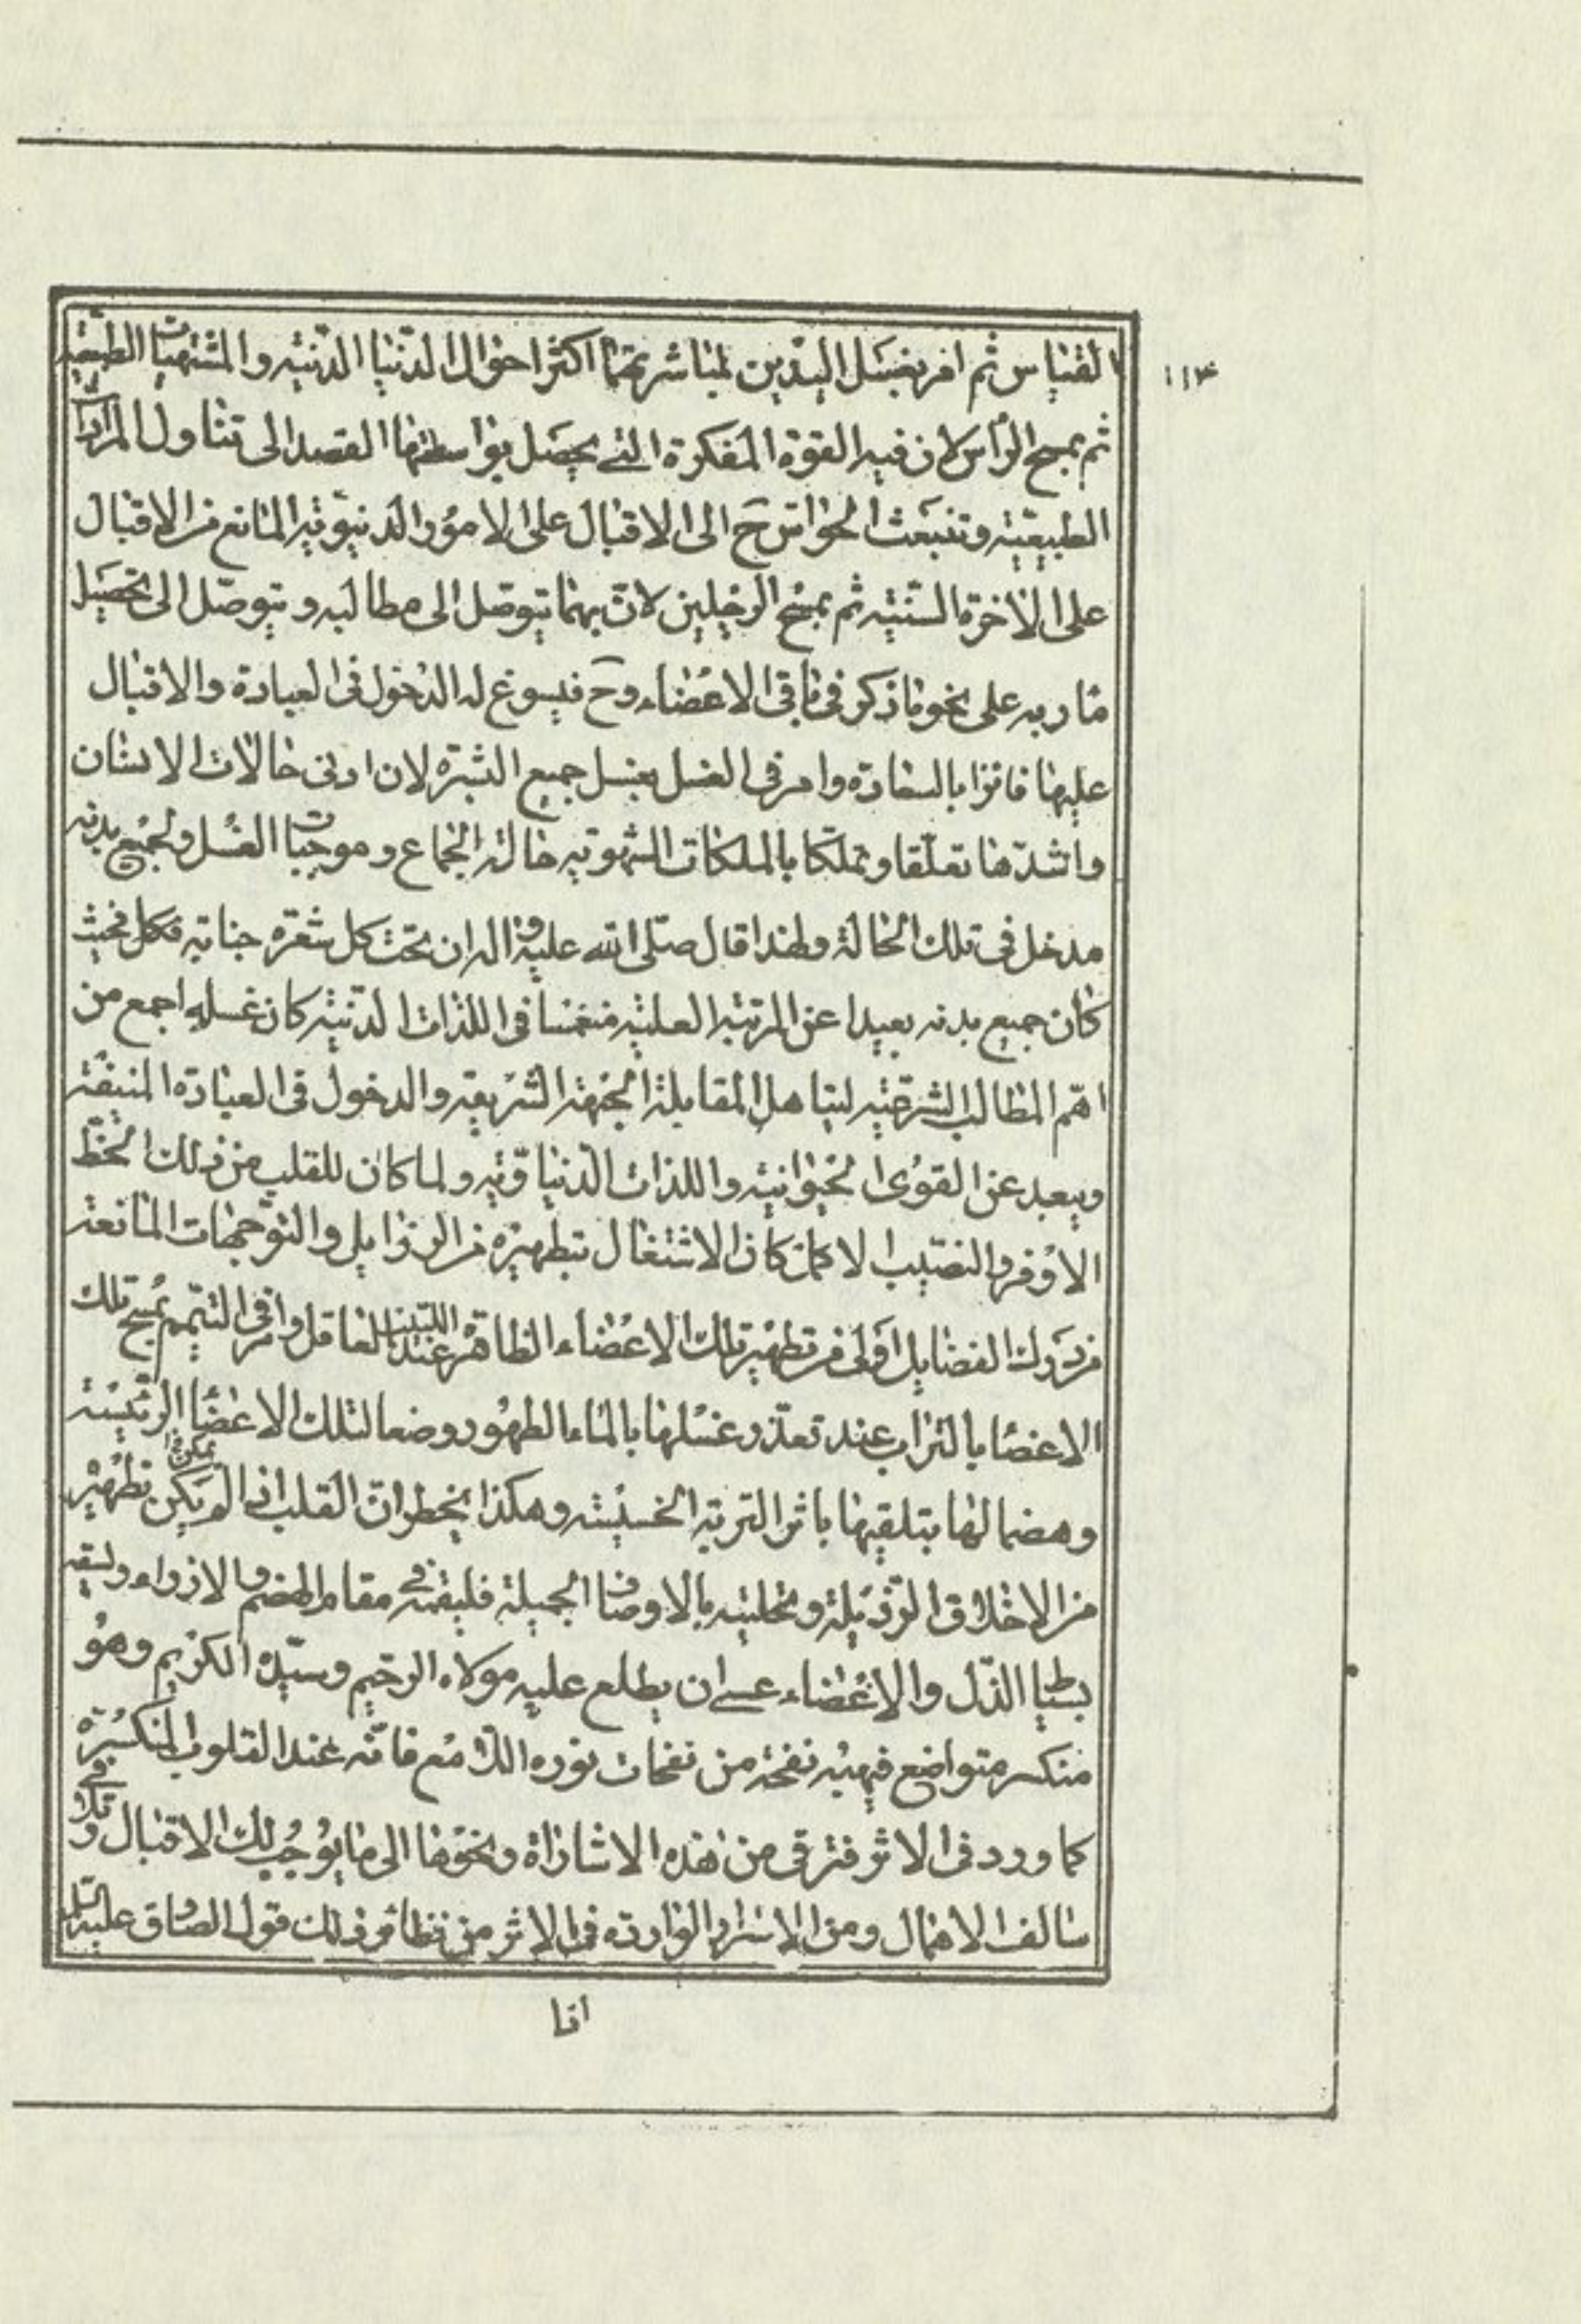 القياس ثم امر بغسل اليدين لمباشرتهما اكثر احوال الدنيا الدنية والمشتهيات الطبيعية
١١٤
ثم بمسح الرأس لان فيه القوة المفكرة التي يحصل بواسطتها القصد الى تناول المرادات
الطبيعية وتنبعث الحواس ح الى الاقبال على الامور الدنيوية المانع من الاقبال
على الاخرة السنية ثم بمسح الرجلين لان بهما يتوصل الى مطالبه ويتوصل الى تحصيل
مآربه على نحو ما ذكر في باقي الاعضاء وح فيسوغ له الدخول في العبادة والاقبال
عليها فائزا بالسعادة وامر في الغسل بغسل جميع البشرة لان ادنى حالات الانسان
واشدها تعلقا وتملكا بالملكات الشهوية حالة الجماع وموجبات الغسل ولجميع بدنه
مدخل في تلك الحالة ولهذا قال صلى الله عليه واله ان تحت كل شعرة جنابة فكل فحيث
كان جميع بدنه بعيدا عن المرتبة العلية منغمسا في اللذات الدنية كان غسله اجمع من
اهم المطالب الشرعية ليتاهل المقابلة الجهة الشريفة والدخول في العبادة المنيفة
ويبعد عن القوى الحيوانية واللذات الدنياوية ولما كان للقلب من ذلك الحظ
الاوفر والنصيب الاكمل كان الاشتغال بتطهيره من الرذايل والتوجهات المانعة
من درك الفضايل اولى من تطهير تلك الاعضاء الظاهرة عند اللبيب العاقل وامر في التيمم بمسح تلك
الاعضا بالتراب عند تعذر غسلها بالماء الطهور وضعا لتلك الاعضا الرئيسة
وهضما لها بتلقيها باثر التربة الخسيسة وهكذا يخطر ان القلب اذا لم يكن يمكن تطهيره
من الاخلاق الرذيلة وتحليته بالاوصاف الجميلة فليقمه في مقام الهضم والازراء وليسقه
بسياط الذل والاغضاء عسى ان يطلع عليه مولاه الرحيم وسيده الكريم وهو
منكسر متواضع فيهبه نفحة من نفحات نوره اللامع فانه عند القلوب المنكسرة
كما ورد في الاثر فترق من هذه الاشاراة ونحوها الى ما يوجب لك الاقبال وتلا في
سالف الاهمال ومن الاسرار الواردة في الاثر من نظائر ذلك قول الصادق عليه السلم
اذا